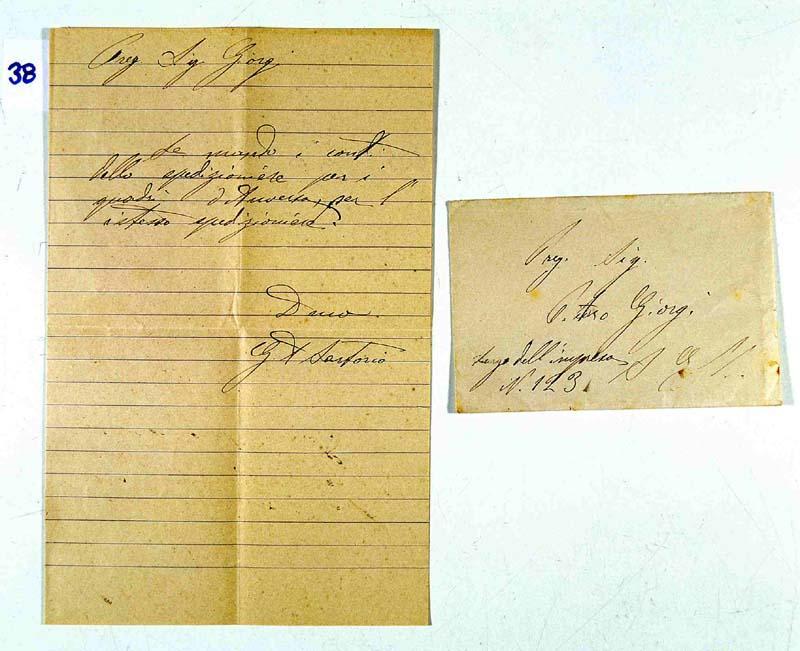 38
Preg Sig Giorgi
Le mando i conti
dello spedizioniere per i
quadri d'Anversa, per l'
istesso spedizioniere.
Devo
G A Sartorio
Preg. Sig.
Pietro Giorgi
dell'impresa
N. 123